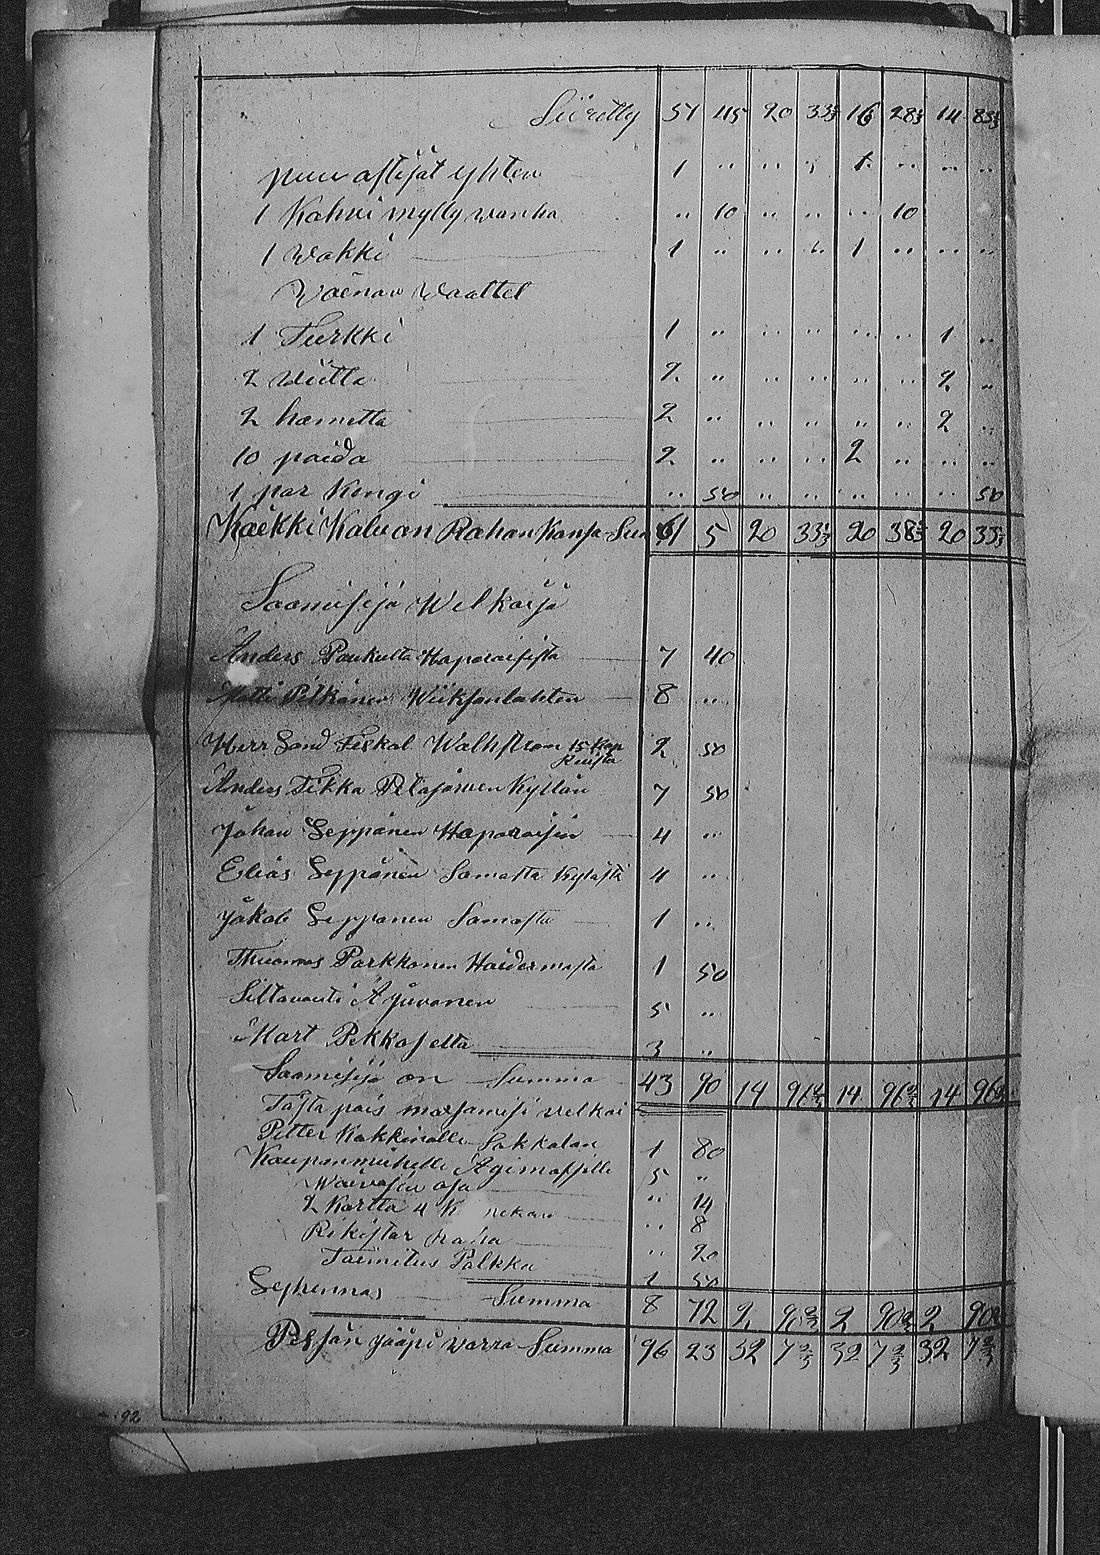 Siiretty 51 45 20 33⅓ 16 28⅓ 14 83⅓
puu astijat yhten 1 .. .. .. 1 .. .. ..
1 Kahvi mylly wanha .. 10 .. .. .. 10
1 Wakki 1 .. .. .. 1 .. .. ..
Waenaw Waattet
1 Turkki 1 .. .. .. .. .. 1 ..
2 Wiitta 2 .. .. .. .. .. 2 ..
2 hametta 2 .. .. .. .. .. 2 ..
10 paida 2 .. .. .. 2 .. .. ..
1 par Kengi .. 50 .. .. .. .. .. 50
Kaekki Kaluan Rahan Kansa Sum 61 5 20 33⅓ 20 38⅓ 20 33⅓
Saamisija Welkasja
Anders Paukutta Haparaisista 7 40
Matti Pitkänen Wiiksanlahten 8 ..
Herr Land Fiskal Walhstrom 15 Kap 2 50
Ruista
Anders Tikka Pitäjärwen Kyllän 7 50
Johan Seppänen Haparaisin 4 ..
Elias Seppänen Samasta Kylästä 4 ..
Jakob Seppänen Samasta 1 ..
Thuomas Parkkonen Haidermasta 1 50
Siltavouti A Juvonen 5 ..
Mart Pekkasetta 3 ..
Saamisija on Summa 43 90 14 96⅔ 14 96⅔ 14 96⅔
Tästa pois maxamisi velkai
Petter Kakkinalle Sakkalan 1 80
Kaupanmiehelle Agimassille 5 ..
Waivasin osa .. 14
2 Kartta 4 .. 8
Rikistar raha .. 20
Toimitus Palkka 1 50
Summa 8 72 2 90⅔ 2 90⅔ 2 90⅔
Pesän jääpi warra Summa 96 23 32 7⅔ 32 7⅔ 32 7⅔
92